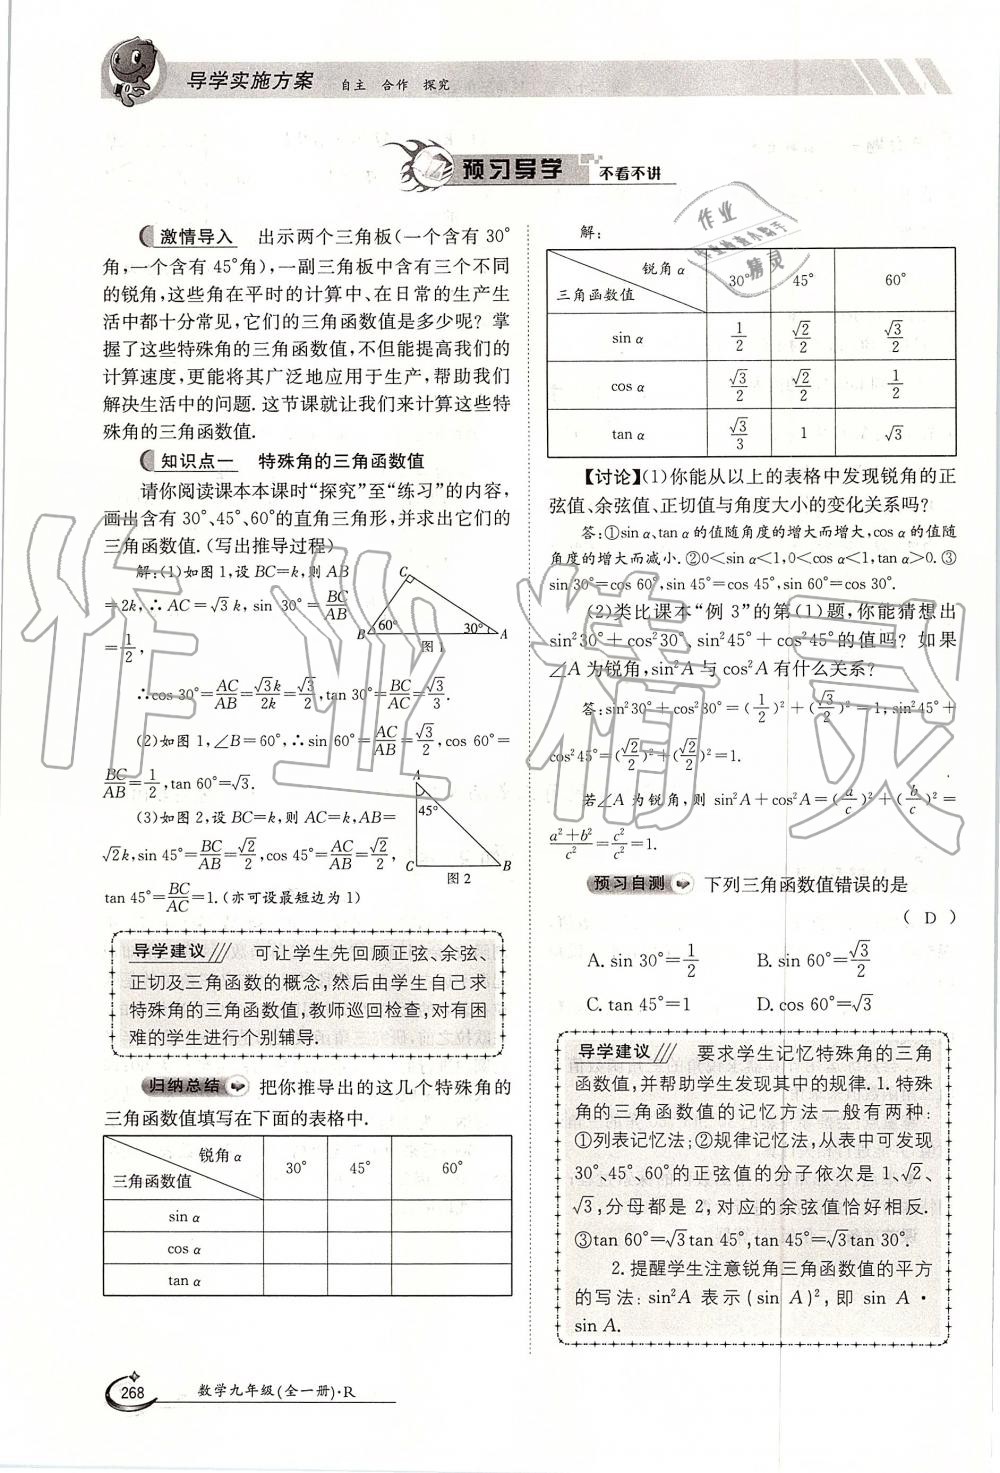 导学实施方案 自主 合作 探究
预习导学 不看不讲
激情导入 出示两个三角板(一个含有 30°
角,一个含有 45°角),一副三角板中含有三个不同
的锐角,这些角在平时的计算中、在日常的生产生
活中都十分常见,它们的三角函数值是多少呢? 掌
握了这些特殊角的三角函数值,不但能提高我们的
计算速度,更能将其广泛地应用于生产,帮助我们
解决生活中的问题. 这节课就让我们来计算这些特
殊角的三角函数值.
知识点一 特殊角的三角函数值
请你阅读课本本课时“探究”至“练习”的内容,
画出含有 30°、45°、60°的直角三角形,并求出它们的
三角函数值.(写出推导过程)
解:(1)如图 1,设 BC=k,则 AB
=2k,∴AC=√3 k, sin 30°=BC/AB
=1/2,
C
B 60° 30° A
图 1
∴cos 30°=AC/AB=√3k/2k=√3/2,tan 30°=BC/AC=√3/3.
(2)如图 1,∠B=60°,∴sin 60°=AC/AB=√3/2,cos 60°=
BC/AB=1/2,tan 60°=√3.
(3)如图 2,设 BC=k,则 AC=k,AB=
√2k,sin 45°=BC/AB=√2/2,cos 45°=AC/AB=√2/2,
tan 45°=BC/AC=1.(亦可设最短边为 1)
A
45°
C B
图 2
导学建议 可让学生先回顾正弦、余弦、
正切及三角函数的概念,然后由学生自己求
特殊角的三角函数值,教师巡回检查,对有困
难的学生进行个别辅导.
归纳总结 把你推导出的这几个特殊角的
三角函数值填写在下面的表格中.
锐角 α 30° 45° 60°
三角函数值
sin α
cos α
tan α
268 数学九年级(全一册)·R
解:
锐角 α 30° 45° 60°
三角函数值
sin α 1/2 √2/2 √3/2
cos α √3/2 √2/2 1/2
tan α √3/3 1 √3
【讨论】(1)你能从以上的表格中发现锐角的正
弦值、余弦值、正切值与角度大小的变化关系吗?
答:①sin α、tan α 的值随角度的增大而增大,cos α 的值随
角度的增大而减小. ②0<sin α<1,0<cos α<1,tan α>0. ③
sin 30°=cos 60°,sin 45°=cos 45°,sin 60°=cos 30°.
(2)类比课本“例 3”的第(1)题,你能猜想出
sin²30°+cos²30°、sin²45°+cos²45°的值吗? 如果
∠A 为锐角,sin²A 与 cos²A 有什么关系?
答:sin²30°+cos²30°=(1/2)²+(√3/2)²=1,sin²45°+
cos²45°=(√2/2)²+(√2/2)²=1.
若∠A 为锐角,则 sin²A+cos²A=(a/c)²+(b/c)²=
a²+b²/c²=c²/c²=1.
预习自测 下列三角函数值错误的是
( D )
A. sin 30°=1/2 B. sin 60°=√3/2
C. tan 45°=1 D. cos 60°=√3
导学建议 要求学生记忆特殊角的三角
函数值,并帮助学生发现其中的规律. 1. 特殊
角的三角函数值的记忆方法一般有两种:
①列表记忆法;②规律记忆法,从表中可发现
30°、45°、60°的正弦值的分子依次是 1、√2、
√3,分母都是 2,对应的余弦值恰好相反.
③tan 60°=√3tan 45°,tan 45°=√3tan 30°.
2. 提醒学生注意锐角三角函数值的平方
的写法:sin²A 表示(sin A)²,即 sin A·
sin A.
作业精灵